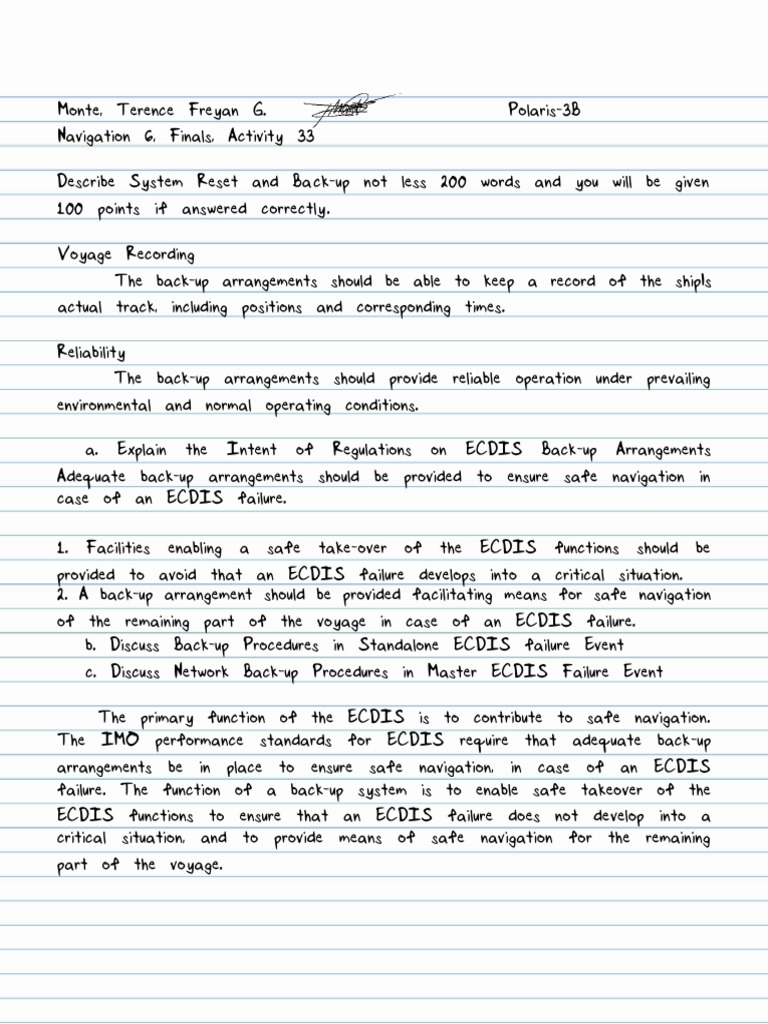 Monte, Terence Freyan G. Polaris-3B
Navigation 6, Finals, Activity 33
Describe System Reset and Back-up not less 200 words and you will be given
100 points if answered correctly.
Voyage Recording
The back-up arrangements should be able to keep a record of the ship's
actual track, including positions and corresponding times.
Reliability
The back-up arrangements should provide reliable operation under prevailing
environmental and normal operating conditions.
a. Explain the Intent of Regulations on ECDIS Back-up Arrangements
Adequate back-up arrangements should be provided to ensure safe navigation in
case of an ECDIS failure.
1. Facilities enabling a safe take-over of the ECDIS functions should be
provided to avoid that an ECDIS failure develops into a critical situation.
2. A back-up arrangement should be provided facilitating means for safe navigation
of the remaining part of the voyage in case of an ECDIS failure.
b. Discuss Back-up Procedures in Standalone ECDIS failure Event
c. Discuss Network Back-up Procedures in Master ECDIS Failure Event
The primary function of the ECDIS is to contribute to safe navigation.
The IMO performance standards for ECDIS require that adequate back-up
arrangements be in place to ensure safe navigation, in case of an ECDIS
failure. The function of a back-up system is to enable safe takeover of the
ECDIS functions to ensure that an ECDIS failure does not develop into a
critical situation, and to provide means of safe navigation for the remaining
part of the voyage.